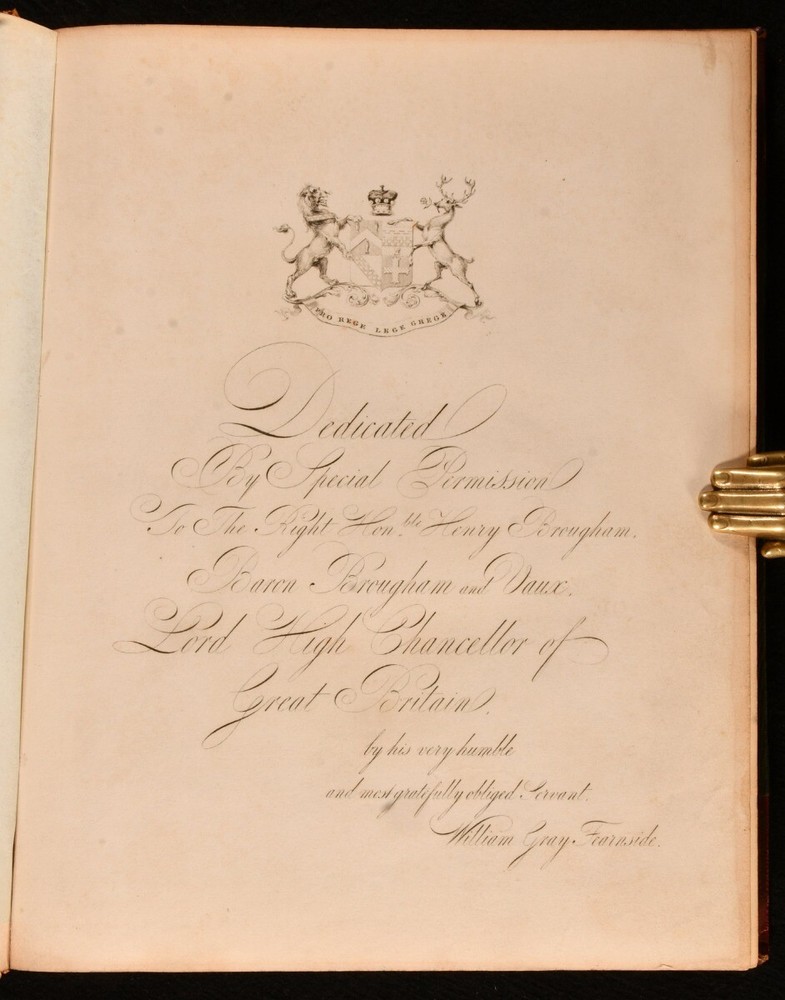 PRO REGE LEGE GREGE
Dedicated
By Special Permission
To The Right Hon.ble Henry Brougham.
Baron Brougham and Vaux.
Lord High Chancellor of
Great Britain.
by his very humble
and most gratefully obliged Servant.
William Gray Fearnside.